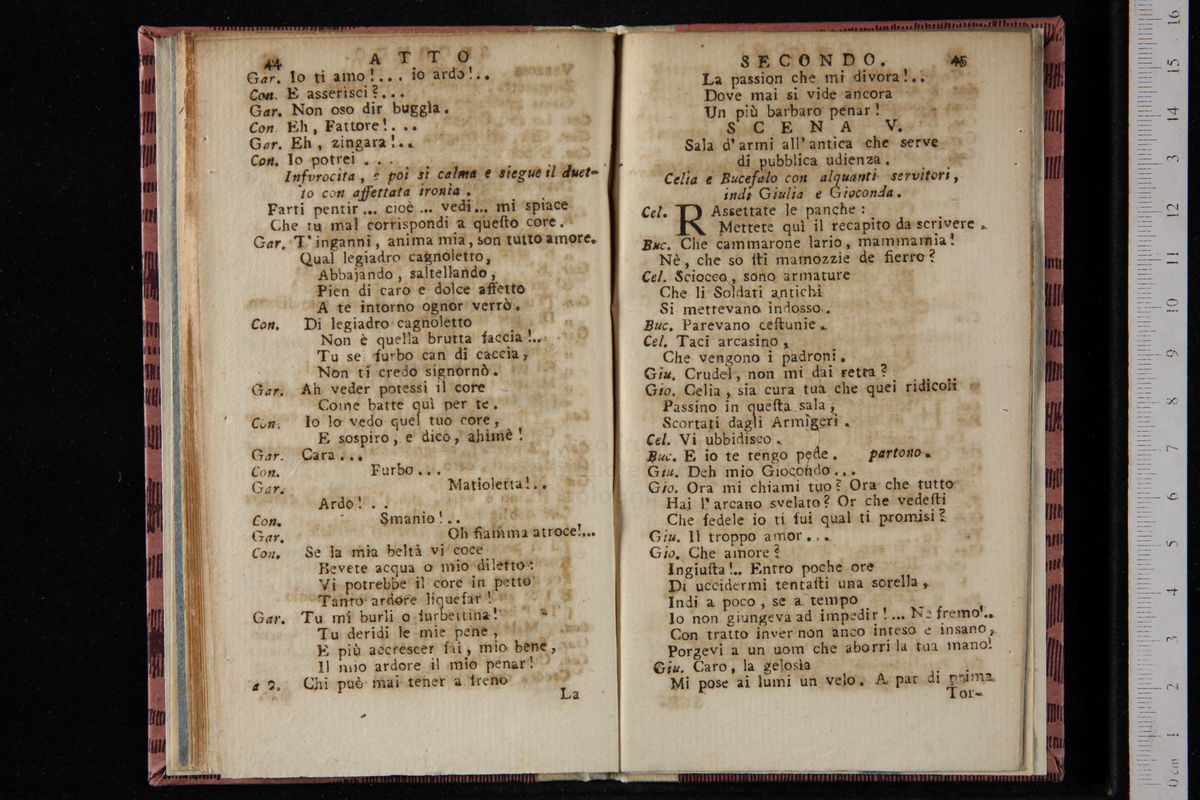 44 A T T O
Gar. Io ti amo!... io ardo!..
Con. E asserisci?...
Gar. Non oso dir buggìa.
Con. Eh, Fattore!...
Gar. Eh, zingara!..
Con. Io potrei ...
Infurocita, e poi si calma e siegue il duet-
to con affettata ironìa.
Farti pentir... cioè ... vedi... mi spiace
Che tu mal corrispondi a queſto core.
Gar. T'inganni, anima mia, son tutto amore.
Qual legiadro cagnoletto,
Abbajando, saltellando,
Pien di caro e dolce affetto
A te intorno ognor verrò.
Con. Di legiadro cagnoletto
Non è quella brutta faccia!..
Tu se furbo can di caccia,
Non ti credo signornò.
Gar. Ah veder potessi il core
Come batte quì per te.
Con. Io lo vedo quel tuo core,
E sospiro, e dico, ahimè!
Gar. Cara...
Con. Furbo...
Gar. Matioletta!..
Ardo!..
Con. Smanio!..
Gar. Oh fiamma atroce!...
Con. Se la mia beltà vi coce
Bevete acqua o mio diletto:
Vi potrebbe il core in petto
Tanto ardore liquefar!
Gar. Tu mi burli o furbettina!
Tu deridi le mie pene,
E più accrescer fai, mio bene,
Il mio ardore il mio penar!
a 2. Chi può mai tener a freno
La
SECONDO. 45
La passion che mi divora!..
Dove mai si vide ancora
Un più barbaro penar!
S C E N A V.
Sala d'armi all'antica che serve
di pubblica udienza.
Celia e Bucefalo con alquanti servitori,
indi Giulia e Gioconda.
Cel. RAssettate le panche:
Mettete quì il recapito da scrivere.
Buc. Che cammarone lario, mammamia!
Nè, che so ſti mamozzie de fierro?
Cel. Sciocco, sono armature
Che li Soldati antichi
Si mettevano indosso.
Buc. Parevano ceſtunie.
Cel. Taci arcasino,
Che vengono i padroni.
Giu. Crudel, non mi dai retta?
Gio. Celia, sia cura tua che quei ridicoli
Passino in queſta sala,
Scortati dagli Armìgeri.
Cel. Vi ubbidisco.
Buc. E io te tengo pede. partono.
Giu. Deh mio Giocondo...
Gio. Ora mi chiami tuo? Ora che tutto
Hai l'arcano svelato? Or che vedeſti
Che fedele io ti fui qual ti promisi?
Giu. Il troppo amor...
Gio. Che amore?
Ingiuſta!.. Entro poche ore
Di uccidermi tentaſti una sorella,
Indi a poco, se a tempo
Io non giungeva ad impedir!... Ne fremo!..
Con tratto inver non anco inteso e insano,
Porgevi a un uom che aborri la tua mano!
Giu. Caro, la gelosìa
Mi pose ai lumi un velo. A par di prima
Tor-
0 cm 1 2 3 4 5 6 7 8 9 10 11 12 13 14 15 16